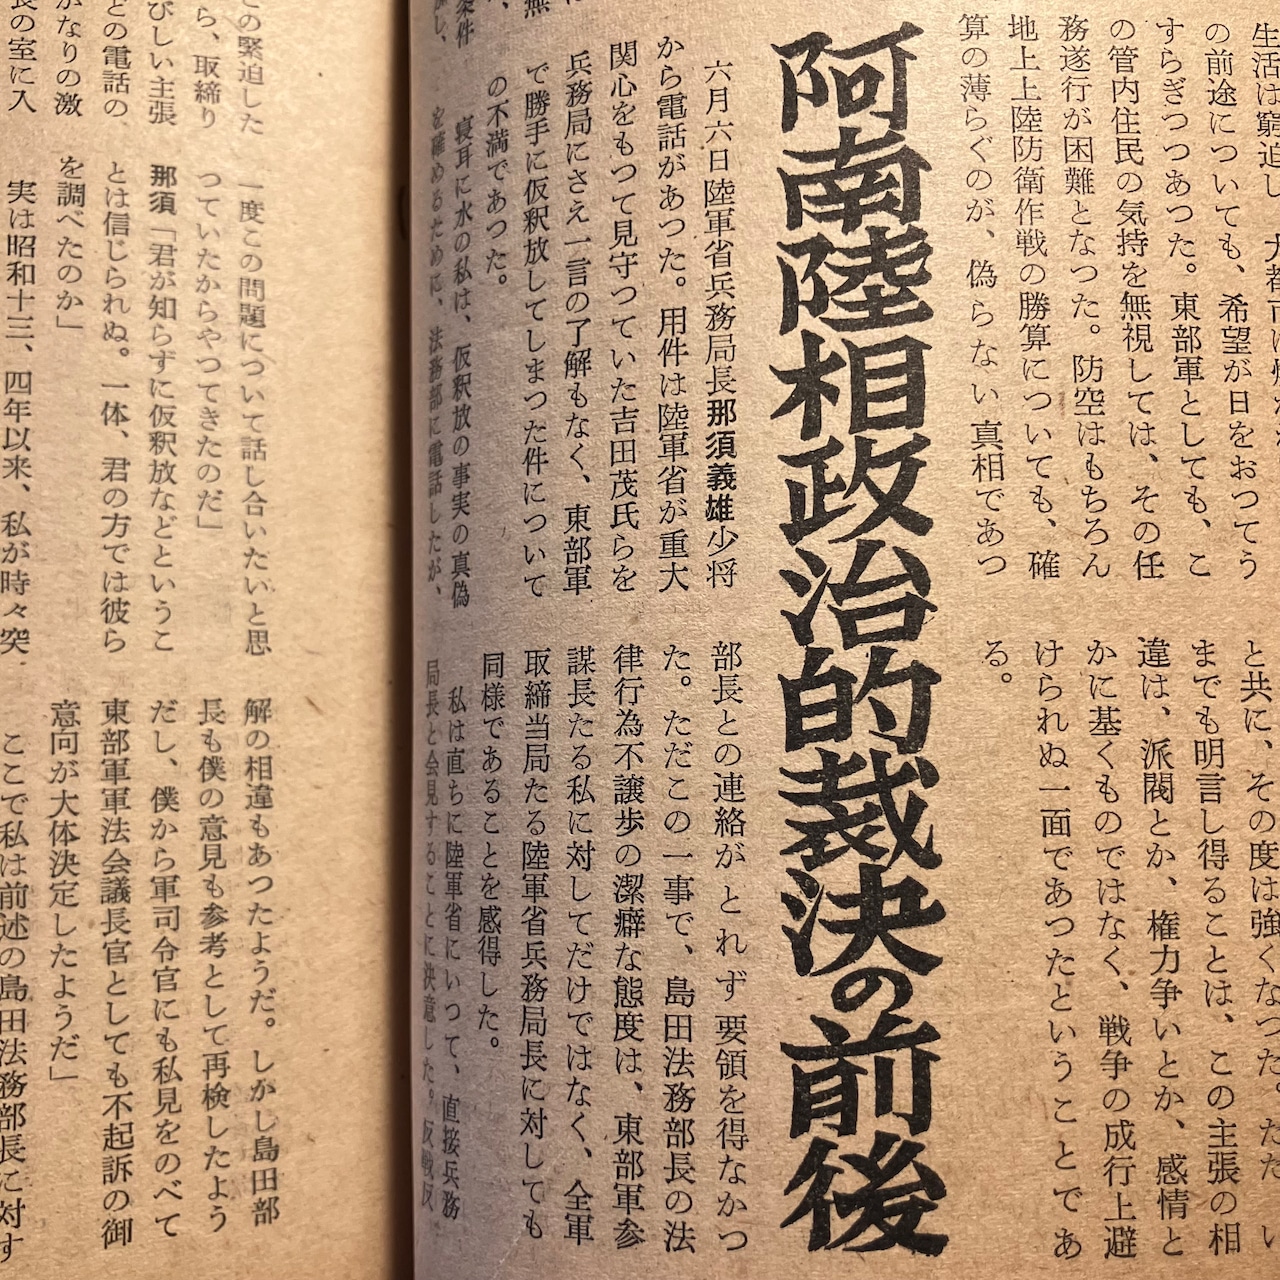 生活は窮迫し、大都市は
の前途についても、希望が日をおつてう
すらぎつつあつた。東部軍としても、こ
の管内住民の気持を無視しては、その任
務遂行が困難となつた。防空はもちろん
地上上陸防衛作戦の勝算についても、確
算の薄らぐのが、偽らない真相であつ
と共に、その度は強くなつた。ただ
までも明言し得ることは、この主張の相
違は、派閥とか、権力争いとか、感情と
かに基くものではなく、戦争の成行上避
けられぬ一面であつたということであ
る。
阿南陸相政治的裁決の前後
六月六日陸軍省兵務局長那須義雄少将
から電話があつた。用件は陸軍省が重大
関心をもつて見守つていた吉田茂氏らを
兵務局にさえ一言の了解もなく、東部軍
で勝手に仮釈放してしまつた件について
の不満であつた。
寝耳に水の私は、仮釈放の事実の真偽
を確めるために、法務部に電話したが、
部長との連絡がとれず要領を得なかつ
た。ただこの一事で、島田法務部長の法
律行為不譲歩の潔癖な態度は、東部軍参
謀長たる私に対してだけではなく、全軍
取締当局たる陸軍省兵務局長に対しても
同様であることを感得した。
私は直ちに陸軍省にいつて、直接兵務
局長と会見することに決意した。反戦反
この緊迫した
ら、取締り
びしい主張
どの電話の
かなりの激
長の室に入
一度この問題について話し合いたいと思
つていたからやつてきたのだ」
那須「君が知らずに仮釈放などというこ
とは信じられぬ。一体、君の方では彼ら
を調べたのか」
実は昭和十三、四年以来、私が時々突
解の相違もあつたようだ。しかし島田部
長も僕の意見も参考として再検したよう
だし、僕から軍司令官にも私見をのべて
東部軍軍法会議長官としても不起訴の御
意向が大体決定したようだ」
ここで私は前述の島田法務部長に対す